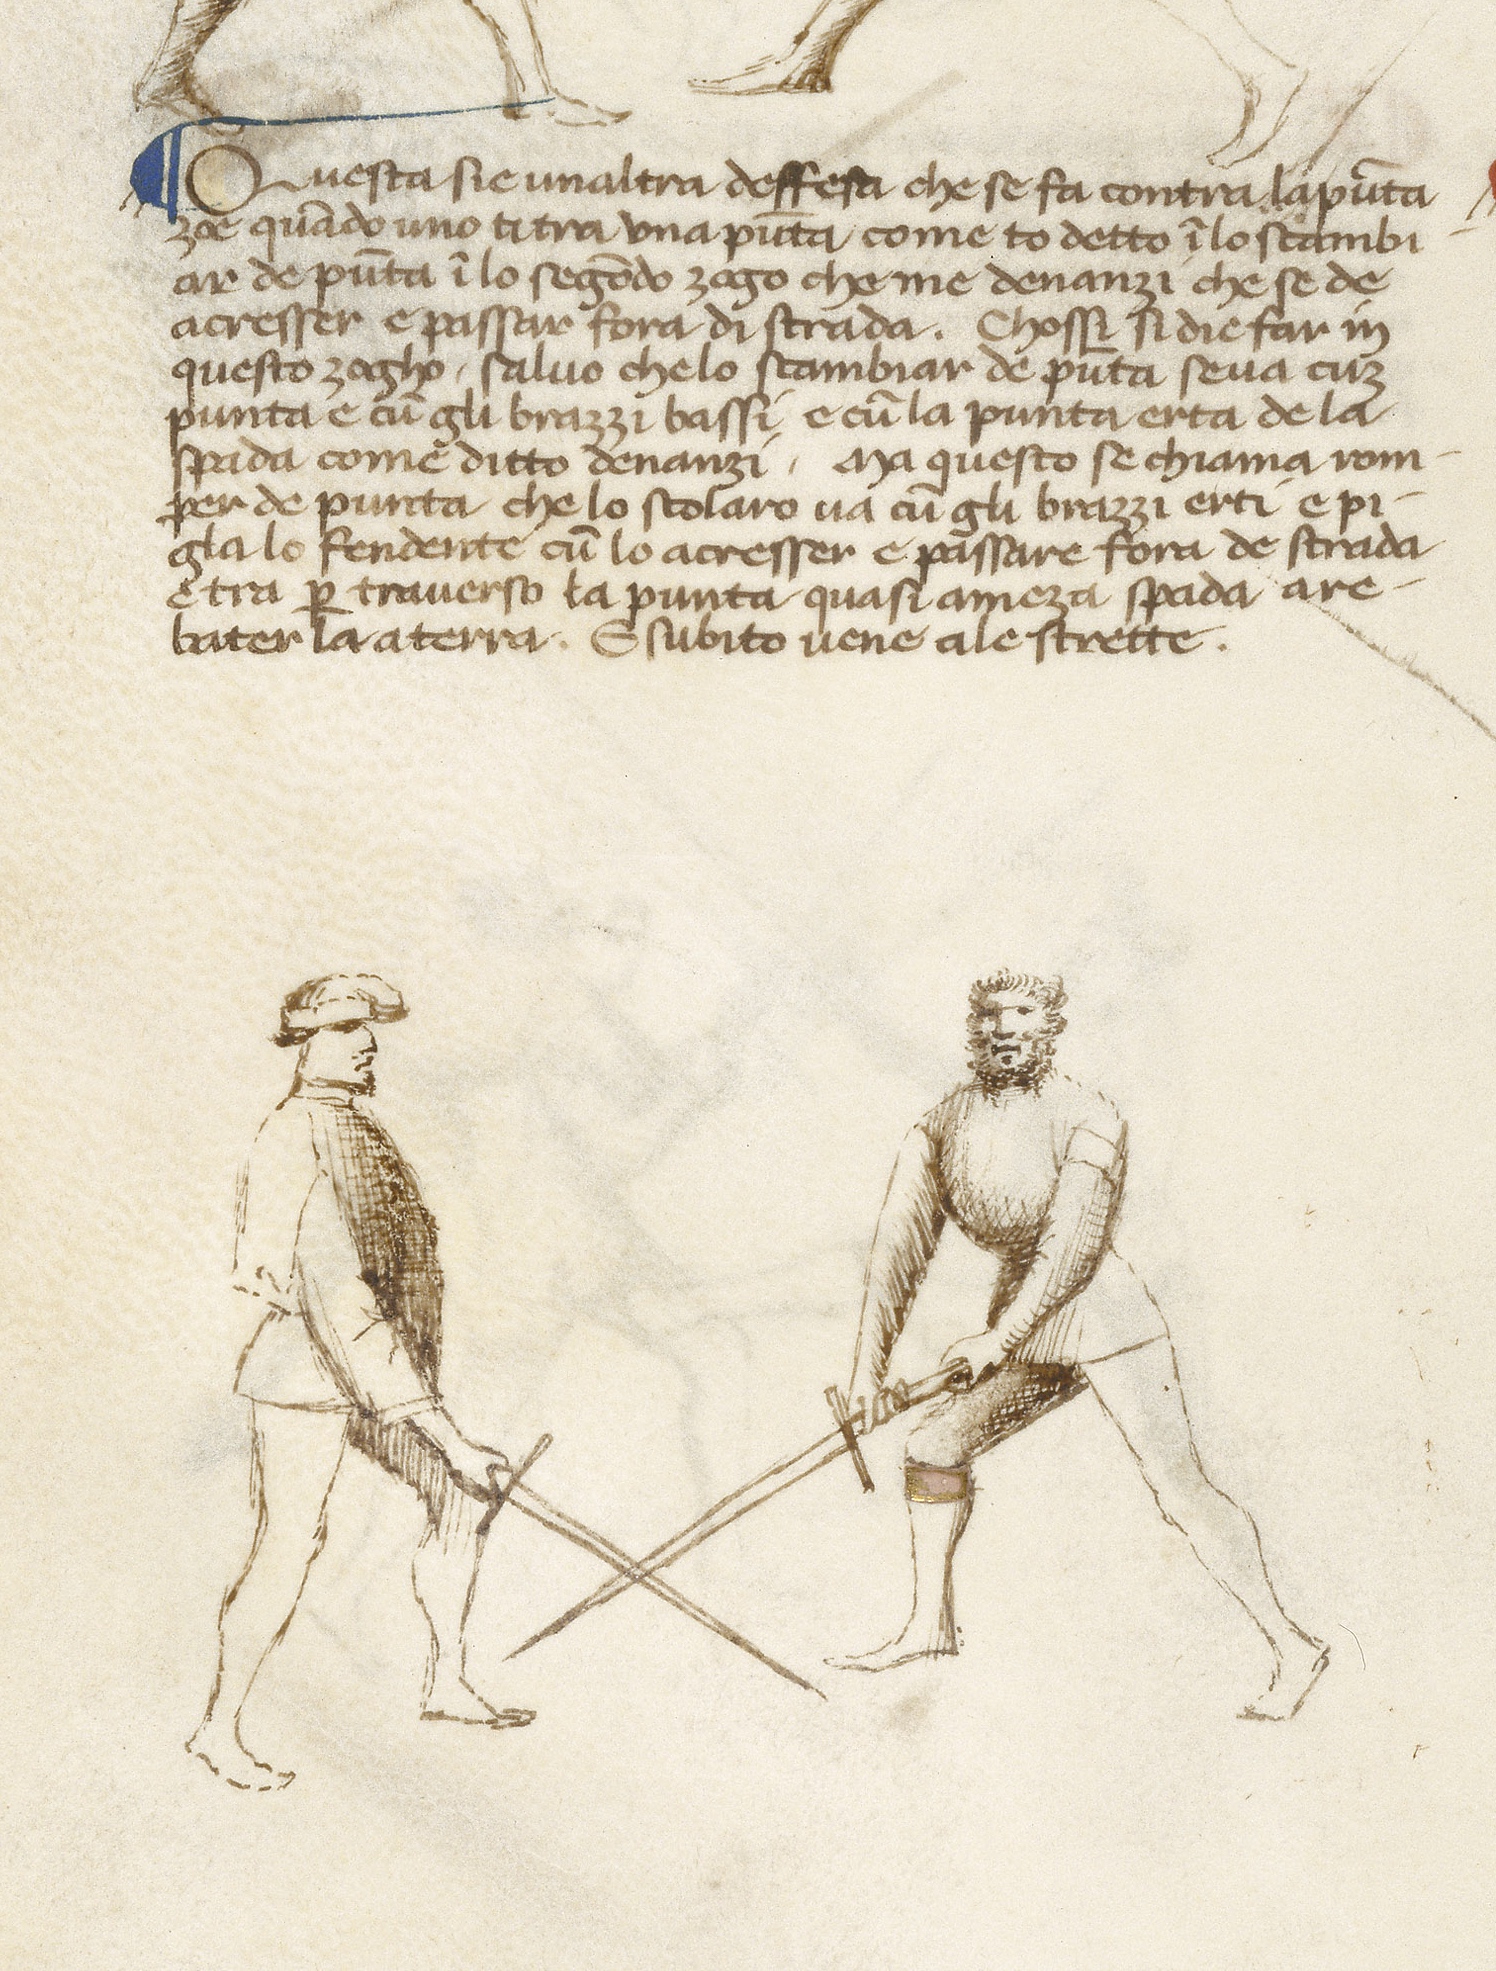 Questa sie unaltra deffesa che se fa contra la pūta
zoe quādo uno ti tra una pūta come to detto ī lo scambi
ar de pūta ī lo segōdo zogo che me denanzi che se de
acresser e passar fora di strada. Chossi si die far in
questo zogho, salvo che lo scambiar de pūta se va cuz
punta e cū gli brazzi bassi, e cū la punta erta de la
spada come ditto denanzi, Ma questo se chiama rom-
per de punta che lo scolaro va cū gli brazzi erti e pi-
gla lo fendente cū lo acresser e passare fora de strada
e tra p̱ traverso la punta quasi a meza spada a re-
baterla a terra. E subito vene a le strette.